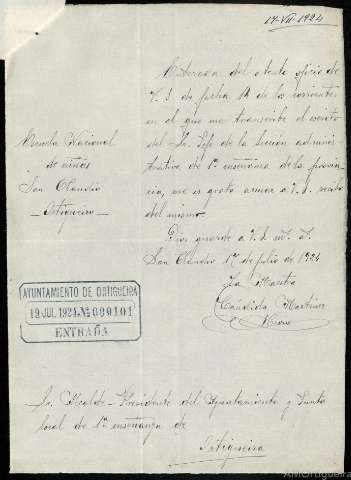 17-VII-1924
Enterada del atento oficio de
V. S. de fecha 14 de los corrientes
en el que me transcribe el escrito
del Sr. Jefe de la Sección adminis-
trativa de 1ª enseñanza de la provin-
cia, me es grato acusar a V. S. recibo
del mismo.
Dios guarde a V. S. m. a.
San Claudio 17 de julio de 1924
La Maestra
Cándida Martínez
Escuela Nacional
de niñas
San Claudio
Ortigueira
AYUNTAMIENTO DE ORTIGUEIRA
19 JUL. 1924. Nº 000101
ENTRADA
Sr. Alcalde-Presidente del Ayuntamiento y Junta
local de 1ª enseñanza de
Ortigueira
AMOrtigueira